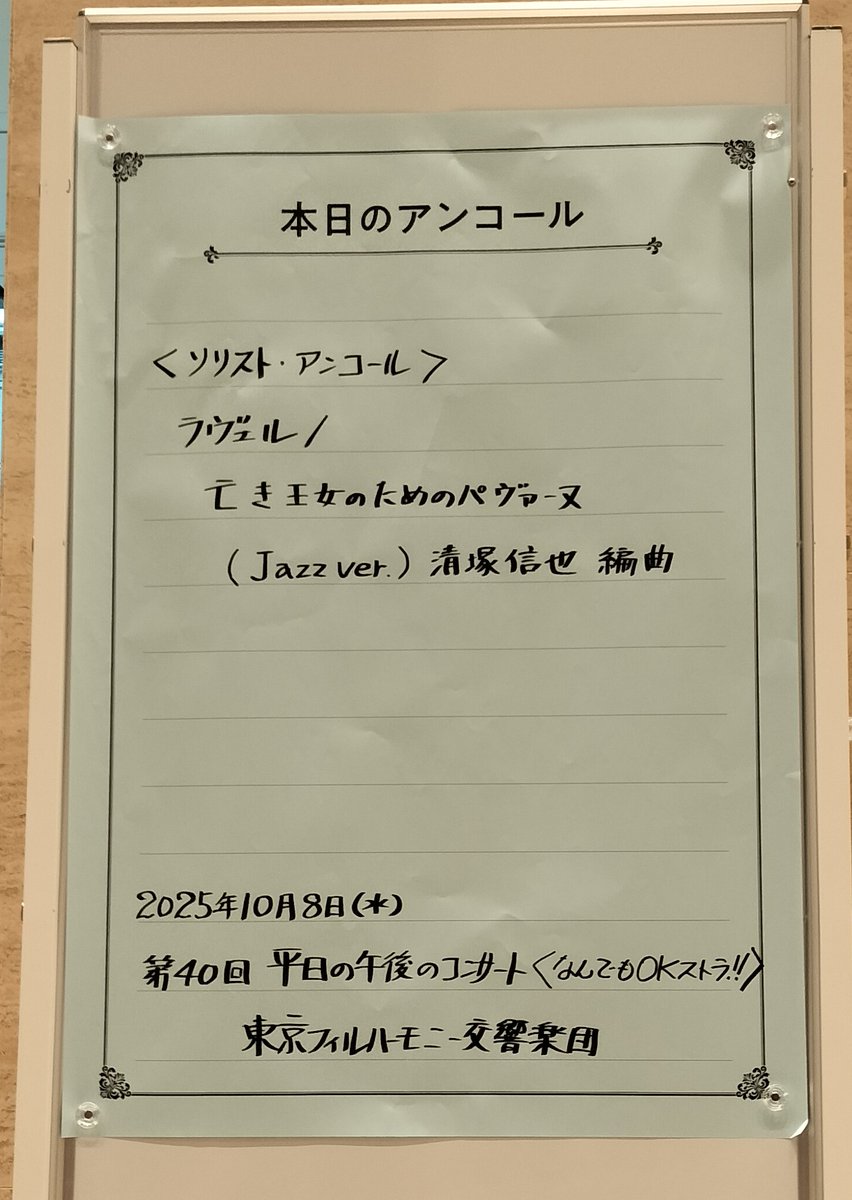 本日のアンコール
<ソリスト・アンコール>
ラヴェル/
亡き王女のためのパヴァーヌ
(Jazz ver.) 清塚信也 編曲
2025年10月8日(水)
第40回 平日の午後のコンサート<なんでもOKストラ!!>
東京フィルハーモニー交響楽団